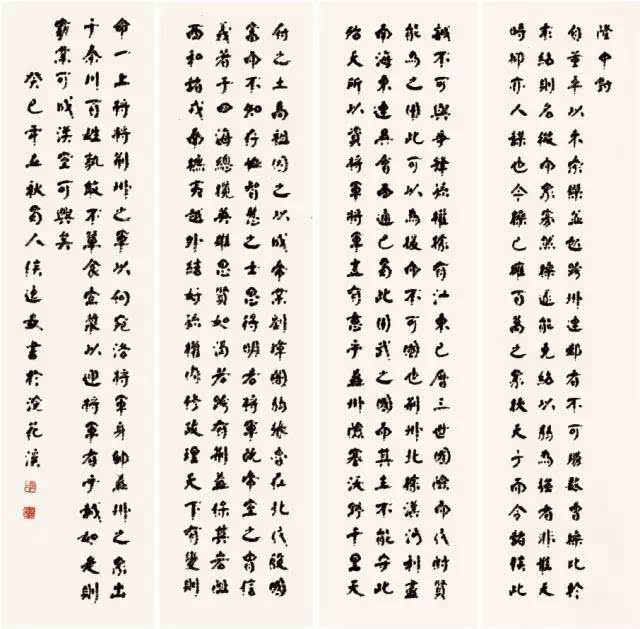 隆中對
自董卓以來豪傑並起跨州連郡者不可勝數曹操比於
袁紹則名微而眾寡然操遂能克紹以弱為強者非惟天
時抑亦人謀也今操已擁百萬之眾挾天子而令諸侯此
誠不可與爭鋒孫權據有江東已歷三世國險而民附賢
能為之用此可以為援而不可圖也荊州北據漢沔利盡
南海東連吳會西通巴蜀此用武之國而其主不能守此
殆天所以資將軍將軍豈有意乎益州險塞沃野千里天
府之土高祖因之以成帝業劉璋闇弱張魯在北民殷國
富而不知存恤智能之士思得明君將軍既帝室之胄信
義著于四海總攬英雄思賢如渴若跨有荊益保其岩阻
西和諸戎南撫夷越外結好孫權內修政理天下有變則
命一上將將荊州之軍以向宛洛將軍身率益州之眾出
于秦川百姓孰敢不簞食壺漿以迎將軍者乎誠如是則
霸業可成漢室可興矣
癸巳年立秋蜀人侯書於浣花溪